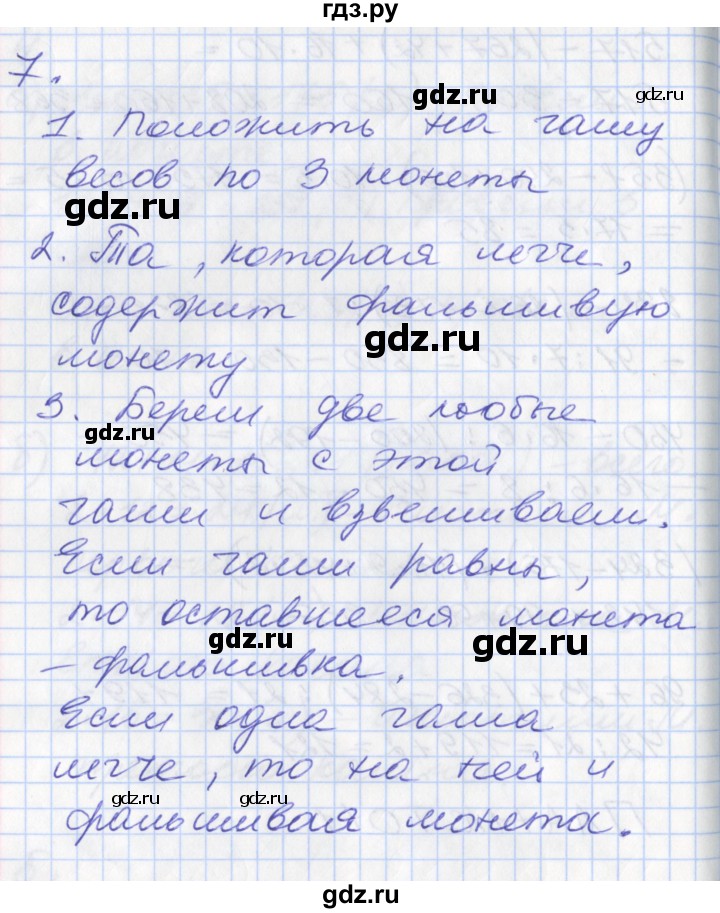 гдз.ру
7.
gdz.ru gdz.ru
1. Положить на чашу
весов по 3 монеты
gdz.ru
2. Та, которая легче,
содержит фальшивую
gdz.ru
монету
3. Берем две любые
gdz.ru
монеты с этой
чаши и взвешиваем.
Если чаши равны,
то оставшееся монета
gdz.ru
– фальшивка.
Если одна чаша
легче, то на ней и
gdz.ru gdz.ru
фальшивая монета.
gdz.ru